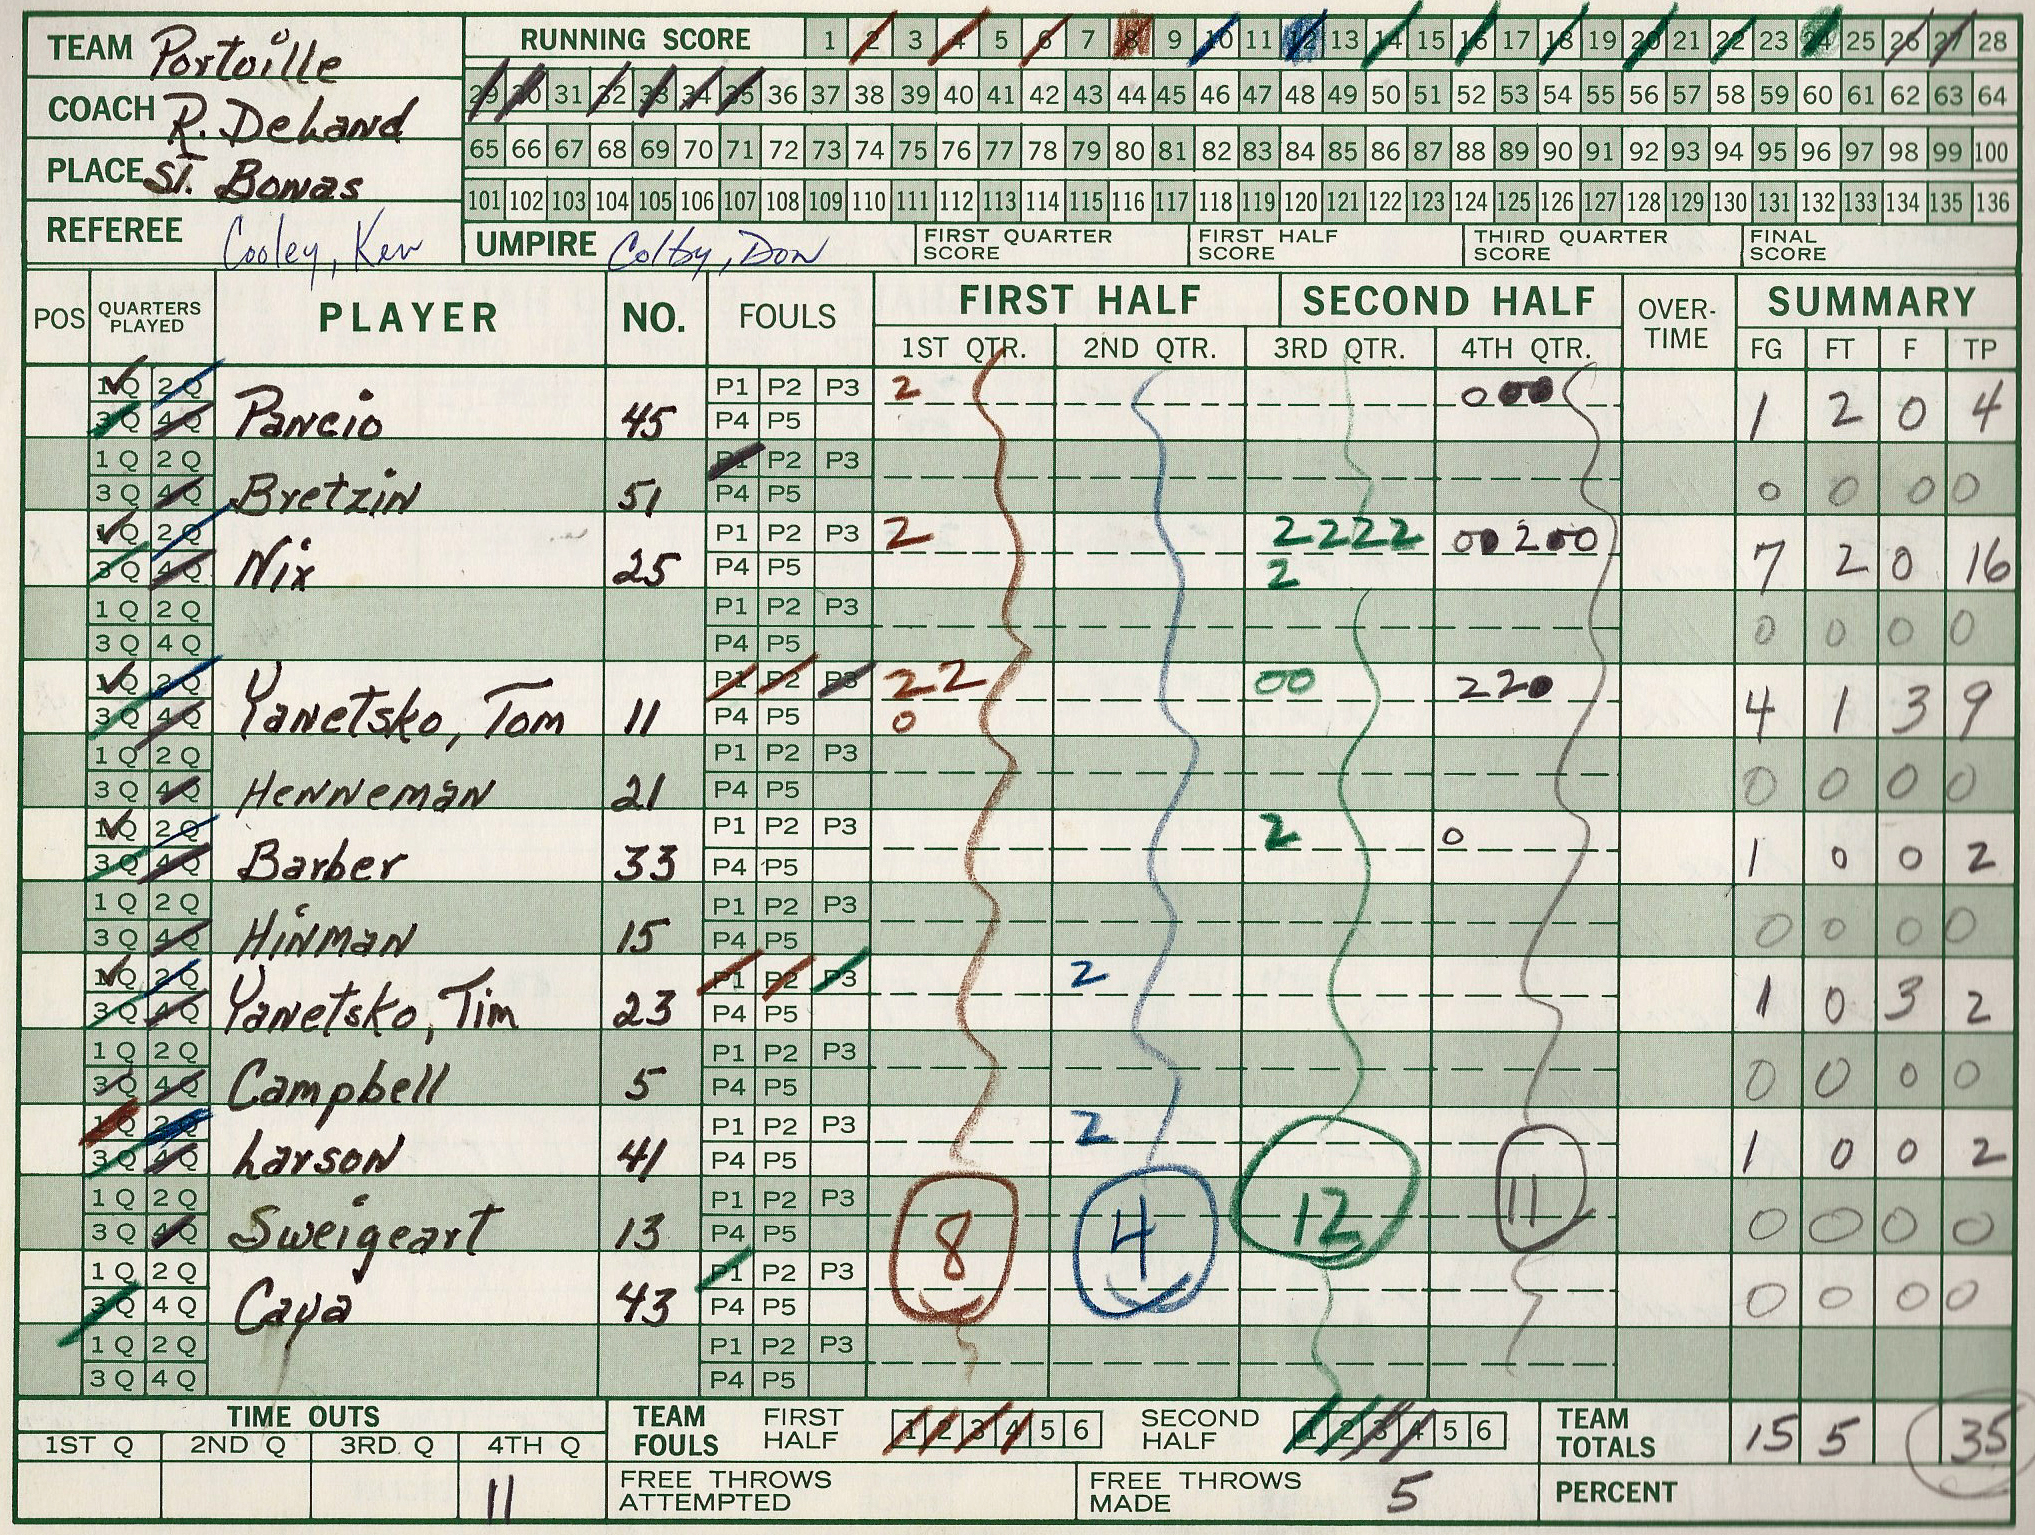 TEAM Portville
RUNNING SCORE 1 2 3 4 5 6 7 8 9 10 11 12 13 14 15 16 17 18 19 20 21 22 23 24 25 26 27 28
29 30 31 32 33 34 35 36 37 38 39 40 41 42 43 44 45 46 47 48 49 50 51 52 53 54 55 56 57 58 59 60 61 62 63 64
COACH R. DeLand
65 66 67 68 69 70 71 72 73 74 75 76 77 78 79 80 81 82 83 84 85 86 87 88 89 90 91 92 93 94 95 96 97 98 99 100
PLACE ST. Bonas
101 102 103 104 105 106 107 108 109 110 111 112 113 114 115 116 117 118 119 120 121 122 123 124 125 126 127 128 129 130 131 132 133 134 135 136
REFEREE Cooley, Ken
UMPIRE Colby, Don
FIRST QUARTER SCORE
FIRST HALF SCORE
THIRD QUARTER SCORE
FINAL SCORE
POS QUARTERS PLAYED PLAYER NO. FOULS FIRST HALF SECOND HALF OVER-TIME SUMMARY
1ST QTR. 2ND QTR. 3RD QTR. 4TH QTR. FG FT F TP
1Q 2Q P1 P2 P3 2 000
3Q 4Q Pancio 45 P4 P5 1 2 0 4
1Q 2Q P1 P2 P3
3Q 4Q Bretzin 51 P4 P5 0 0 0 0
1Q 2Q P1 P2 P3 2 2222 00200
3Q 4Q Nix 25 P4 P5 2 7 2 0 16
1Q 2Q P1 P2 P3
3Q 4Q P4 P5 0 0 0 0
1Q 2Q P1 P2 P3 22 00 220
3Q 4Q Yanetsko, Tom 11 P4 P5 0 4 1 3 9
1Q 2Q P1 P2 P3
3Q 4Q Henneman 21 P4 P5 0 0 0 0
1Q 2Q P1 P2 P3 2 0
3Q 4Q Barber 33 P4 P5 1 0 0 2
1Q 2Q P1 P2 P3
3Q 4Q Hinman 15 P4 P5 0 0 0 0
1Q 2Q P1 P2 P3 2
3Q 4Q Yanetsko, Tim 23 P4 P5 1 0 3 2
1Q 2Q P1 P2 P3
3Q 4Q Campbell 5 P4 P5 0 0 0 0
1Q 2Q P1 P2 P3 2
3Q 4Q Larson 41 P4 P5 1 0 0 2
1Q 2Q P1 P2 P3 8 4 12 11
3Q 4Q Sweigeart 13 P4 P5 0 0 0 0
1Q 2Q P1 P2 P3
3Q 4Q Caya 43 P4 P5 0 0 0 0
1Q 2Q P1 P2 P3
3Q 4Q P4 P5
TIME OUTS
1ST Q 2ND Q 3RD. Q 4TH Q
11
TEAM FOULS FIRST HALF 1 2 3 4 5 6 SECOND HALF 1 2 3 4 5 6
TEAM TOTALS 15 5 35
FREE THROWS ATTEMPTED
FREE THROWS MADE 5
PERCENT